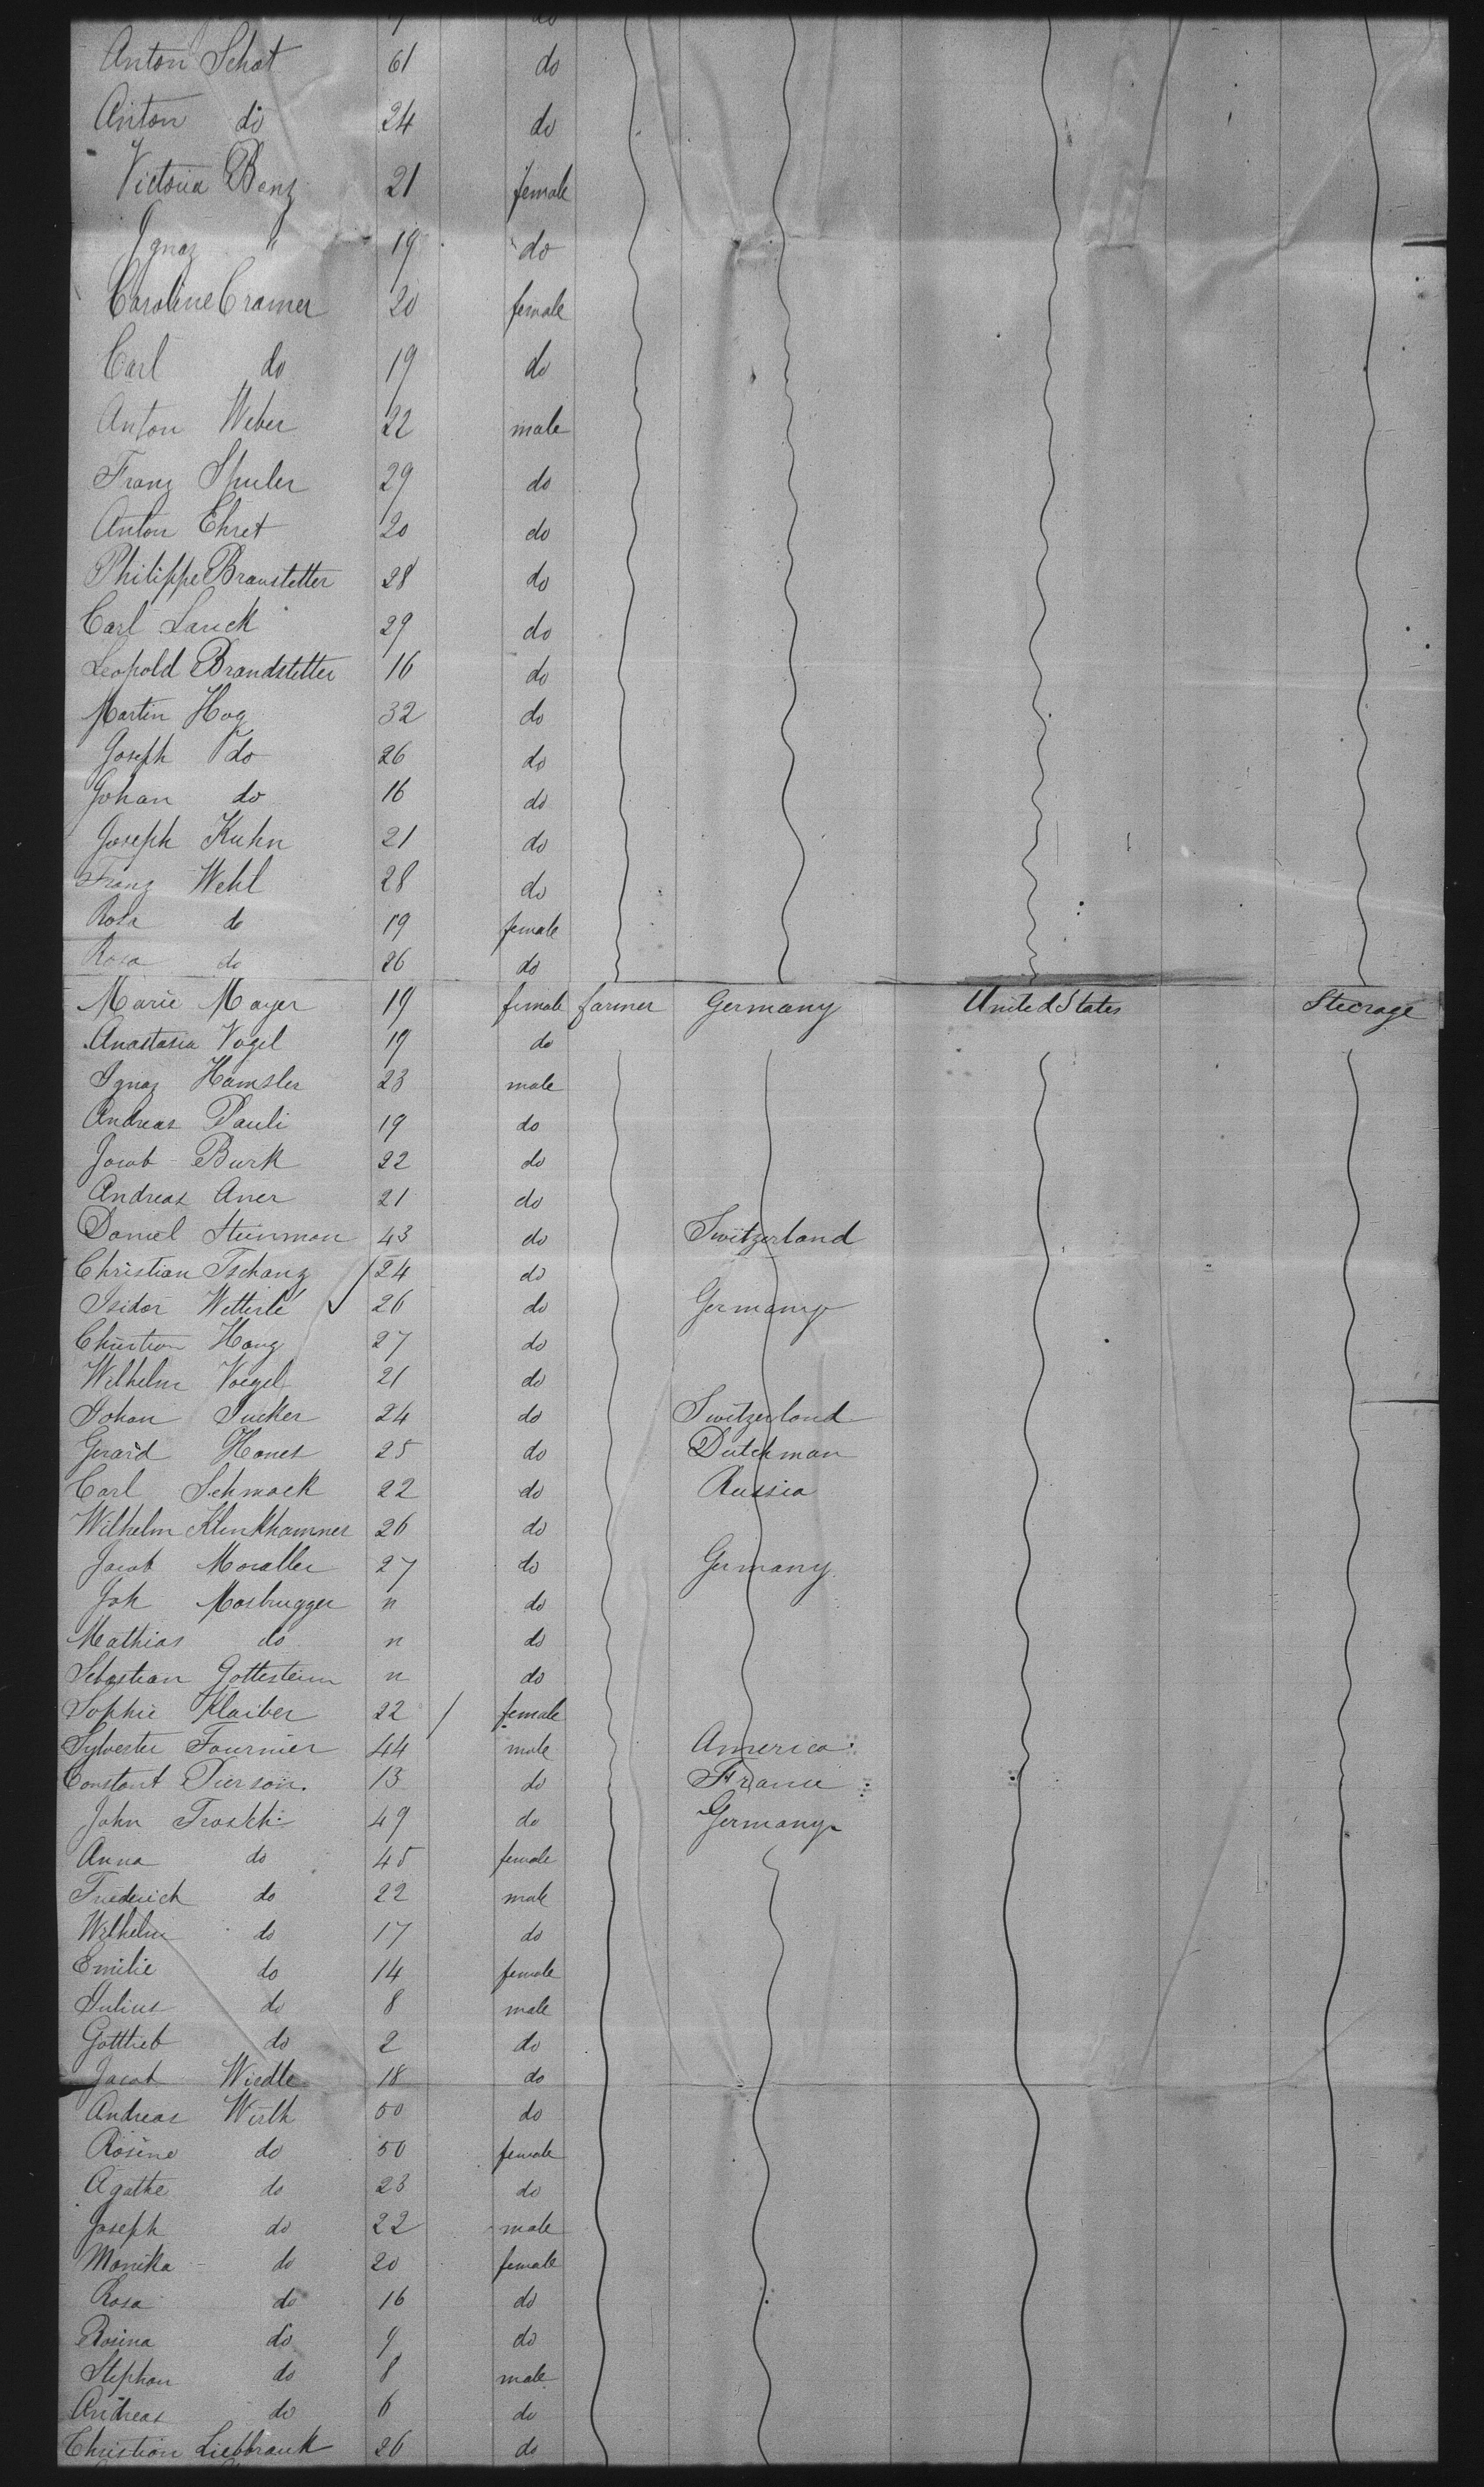 Anton Schot 61 do
Anton do 24 do
Victoria Benz 21 female
Ignaz " 19 do
Caroline Cramer 20 female
Carl do 19 do
Anton Weber 22 male
Franz Spuler 29 do
Anton Ehret 20 do
Philippe Braustetter 28 do
Carl Lauck 29 do
Leopold Brandstetter 16 do
Martin Hog 32 do
Joseph do 26 do
Johan do 16 do
Joseph Kuhn 21 do
Franz Wehl 28 do
Rosa do 19 female
Rosa do 26 do
Marie Mayer 19 female farmer Germany United States Steerage
Anastasia Vogel 19 do
Ignaz Hamsler 23 male
Andreas Pauli 19 do
Jacob Burk 22 do
Andreas Auer 21 do
Daniel Steinman 43 do Switzerland
Christian Tschanz 24 do
Isidor Wetterlé 26 do Germany
Christian Haug 27 do
Wilhelm Voegel 21 do
Johan Sucker 24 do Switzerland
Gerard Hanes 25 do Dutchman
Carl Schmack 22 do Russia
Wilhelm Klinkhammer 26 do
Jacob Moraller 27 do Germany
Joh Mosbrugger n do
Mathias do n do
Sebastian Gottestein n do
Sophie Klaiber 22 / female
Sylvester Fournier 44 male America
Constant Pierson. 13 do France
John Froskh 49 do Germany
Anna do 45 female
Friederich do 22 male
Wilhelm do 17 do
Emilie do 14 female
Julius do 8 male
Gottlieb do 2 do
Jacob Wiedle 18 do
Andreas Wirth 50 do
Rosine do 50 female
Agathe do 23 do
Joseph do 22 male
Monika do 20 female
Rosa do 16 do
Rosina do 9 do
Stephan do 8 male
Andreas do 6 do
Christian Liebbrauk 26 do